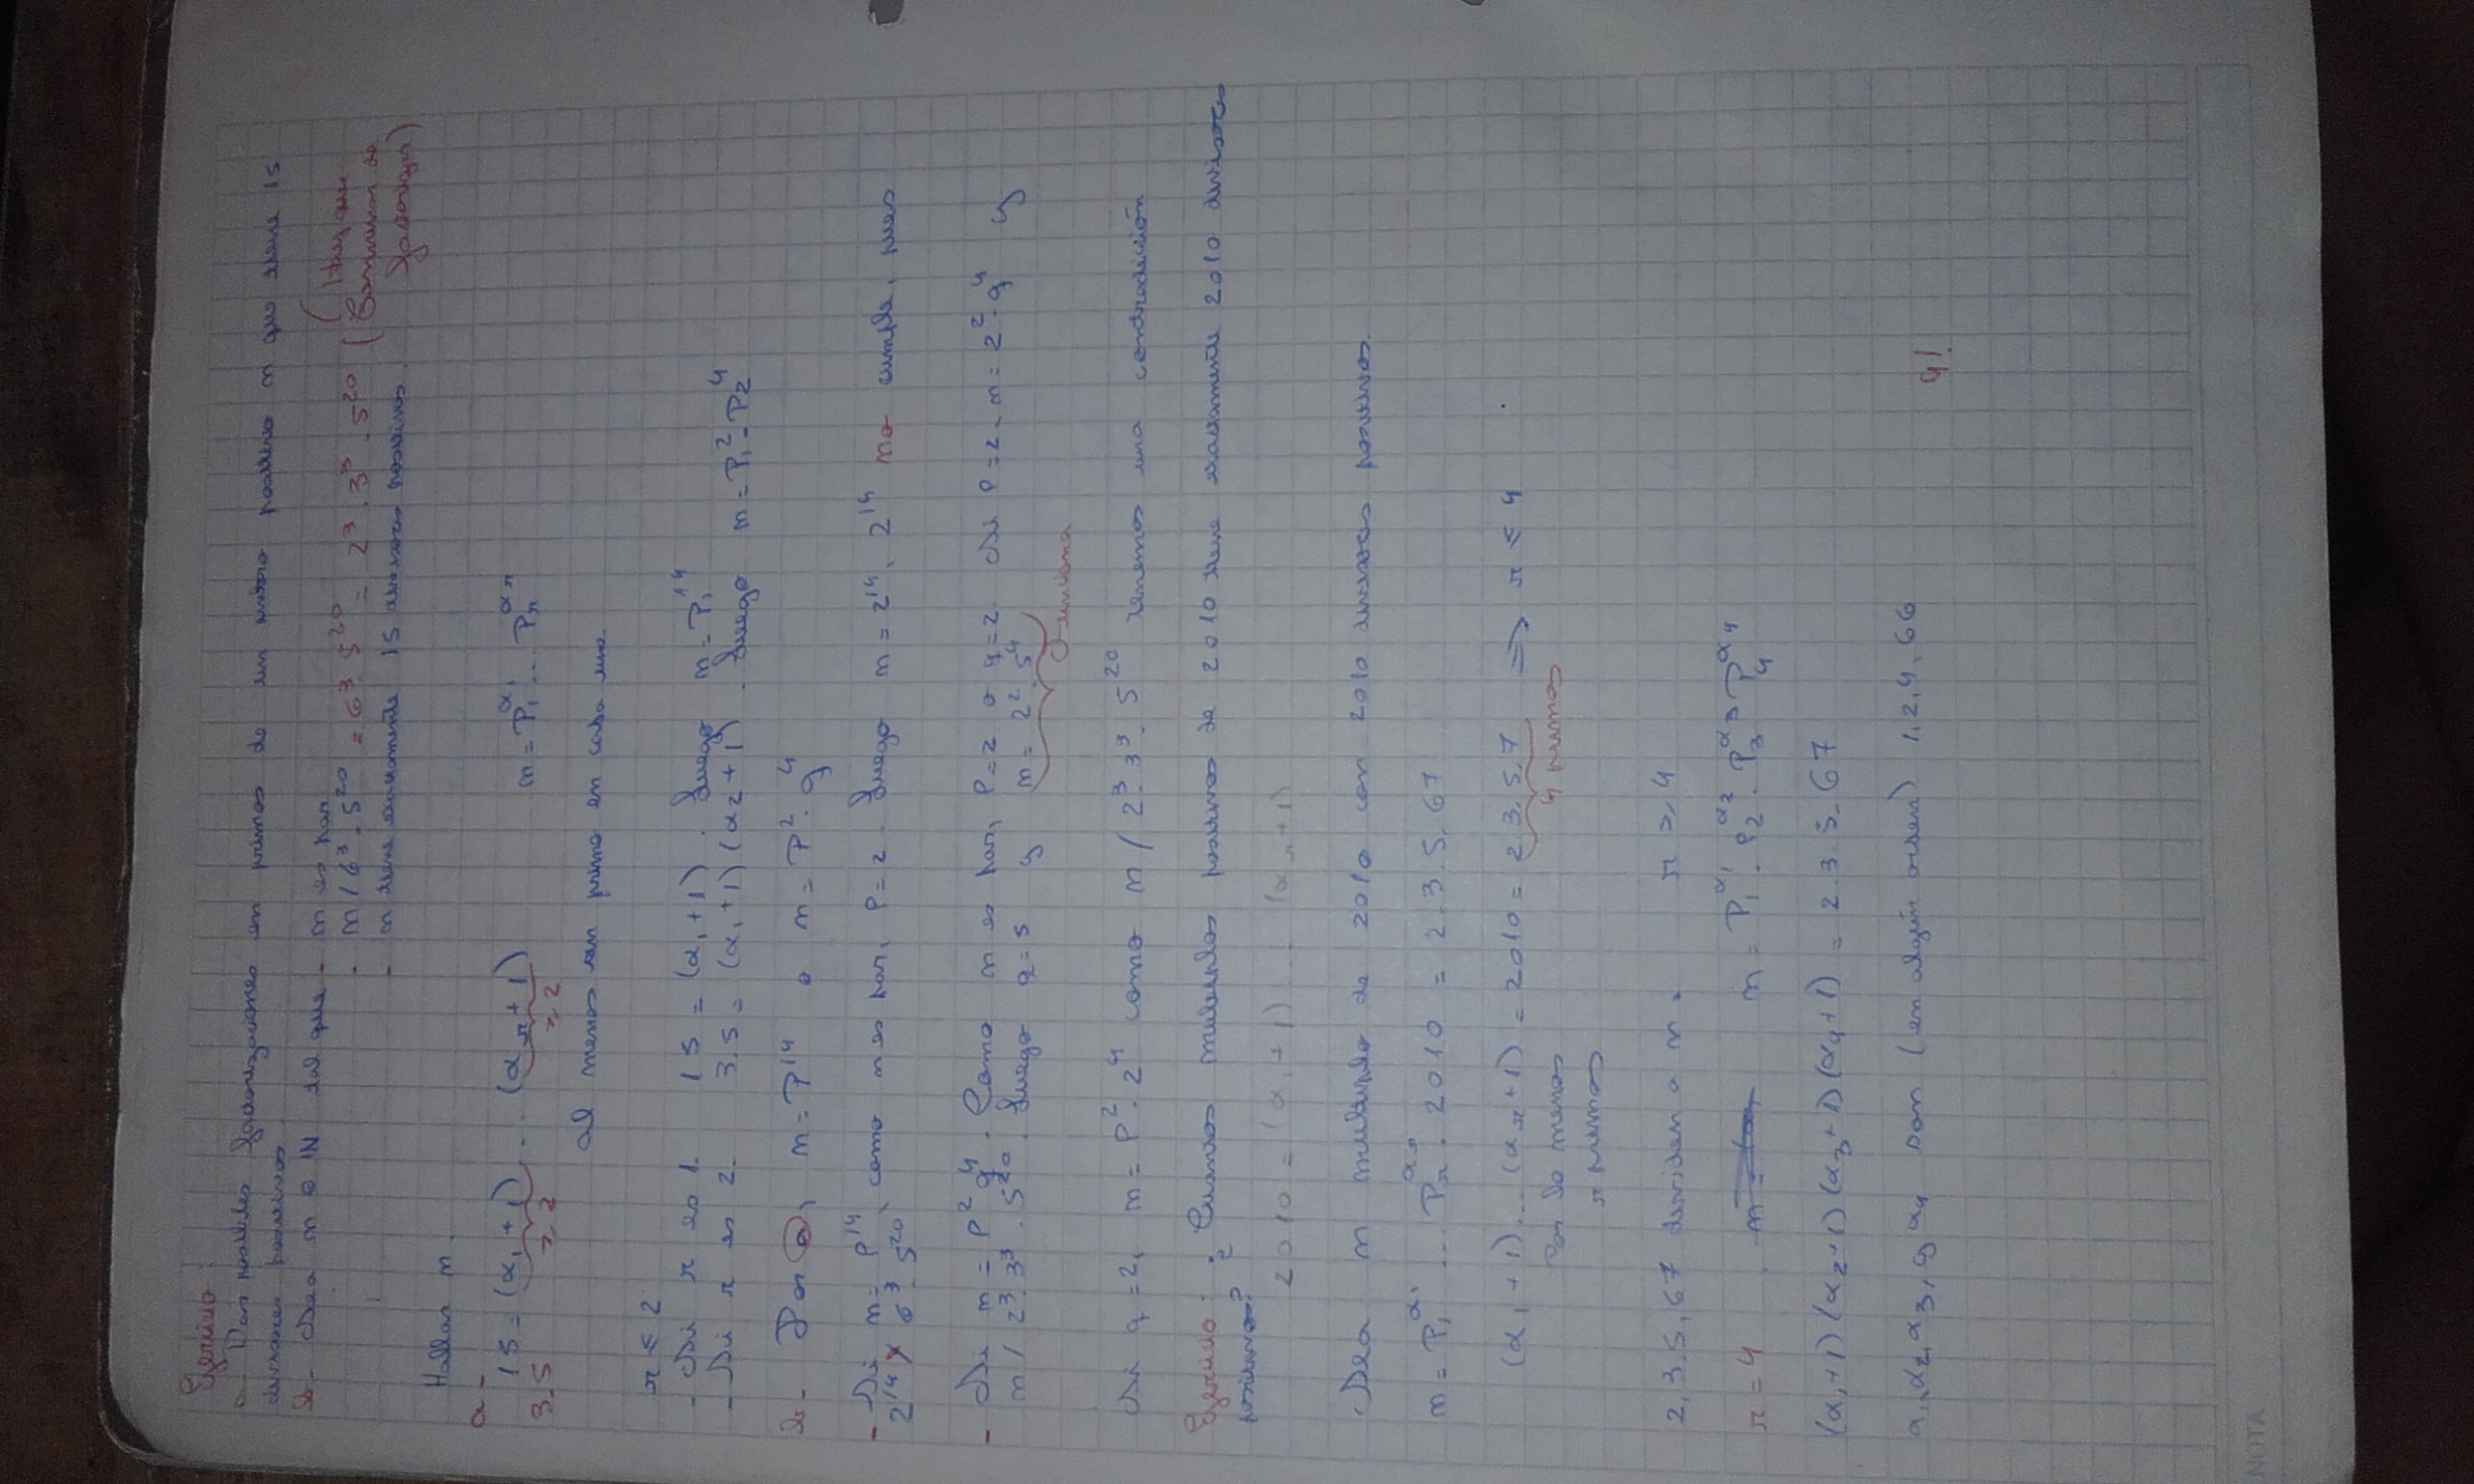 Ejercicio:
a- Dar posibles factorizaciones en primos de un entero positivo n que tiene 15
divisores positivos.
b- Sea n ∈ IN tal que - n es par
- n / 6³ . 5²⁰ = 6³ . 5²⁰ = 2³ . 3³ . 5²⁰ ( Hay que
- n tiene exactamente 15 divisores positivos. factorizar)
Hallar n.
a-
15 = (α₁ + 1) ... (αr + 1) n = P₁^α₁ ... Pr^αr
3.5 ≥ 2 ≥ 2
Al menos un primo en cada uno.
r ≤ 2
- Si r es 1. 15 = (α₁ + 1) . Luego n = P₁¹⁴
- Si r es 2. 3.5 = (α₁ + 1) (α₂ + 1) . Luego n = P₁² . P₂⁴
b- Por a, n = P¹⁴ o n = P² . q⁴
- Si n = P¹⁴, como n es par, P = 2 . Luego n = 2¹⁴. 2¹⁴ no cumple, pues
2¹⁴ ∤ 6³ . 5²⁰
- Si n = P² q⁴ . Como n es par, P = 2 o q = 2. Si P = 2, n = 2² . q⁴ y
n / 2³ . 3³ . 5²⁰ . Luego q = 5 y n = 2² . 5⁴
Funciona
Si q = 2, n = P² . 2⁴ como n / 2³ . 3³ . 5²⁰ tenemos una contradicción
Ejercicio: ¿ Cuantos multiplos positivos de 2010 tiene exactamente 2010 divisores
positivos?
2010 = (α₁ + 1) ... (αr + 1)
Sea n multiplo de 2010 con 2010 divisores positivos.
n = P₁^α₁ ... Pr^αr . 2010 = 2.3.5.67
(α₁ + 1) ... (αr + 1) = 2010 = 2.3.5.7 ⟹ r ≤ 4
Por lo menos 4 primos
r primos
2, 3, 5, 67 dividen a n. r ≥ 4
r = 4 n = P₁^α₁ . P₂^α₂ . P₃^α₃ P₄^α₄
(α₁+1) (α₂+1) (α₃+1) (α₄+1) = 2.3.5.67
α₁, α₂, α₃, y α₄ son (en algún orden) 1, 2, 4, 66 4!
NOTA